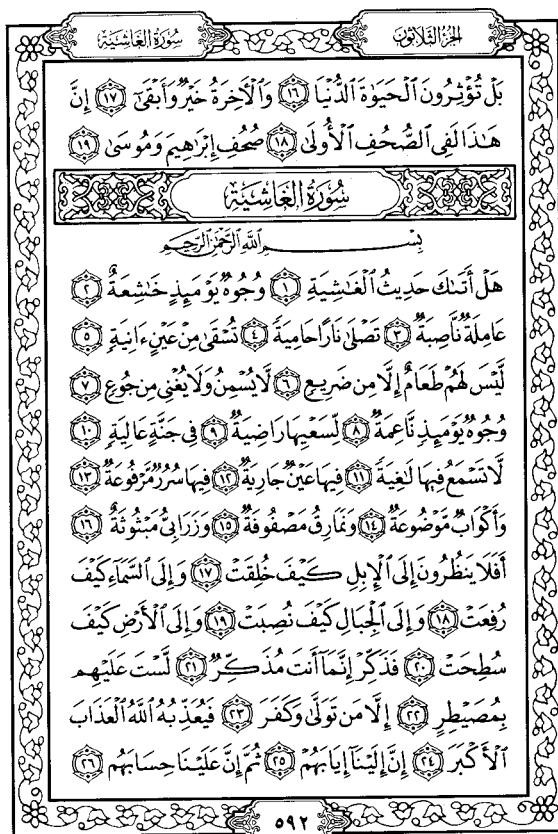 الجزء الثلاثون
سورة الغاشية
بَلْ تُؤْثِرُونَ ٱلْحَيَوٰةَ ٱلدُّنْيَا ١٦ وَٱلْأَخِرَةُ خَيْرٌ وَأَبْقَىٰٓ ١٧ إِنَّ
هَٰذَا لَفِى ٱلصُّحُفِ ٱلْأُولَىٰ ١٨ صُحُفِ إِبْرَٰهِيمَ وَمُوسَىٰ ١٩
سُورَةُ الغَاشِيَةِ
بِسْمِ اللَّهِ الرَّحْمَٰنِ الرَّحِيمِ
هَلْ أَتَىٰكَ حَدِيثُ ٱلْغَٰشِيَةِ ١ وُجُوهٌ يَوْمَئِذٍ خَٰشِعَةٌ ٢
عَامِلَةٌ نَّاصِبَةٌ ٣ تَصْلَىٰ نَارًا حَامِيَةً ٤ تُسْقَىٰ مِنْ عَيْنٍ ءَانِيَةٍ ٥
لَّيْسَ لَهُمْ طَعَامٌ إِلَّا مِن ضَرِيعٍ ٦ لَّا يُسْمِنُ وَلَا يُغْنِى مِن جُوعٍ ٧
وُجُوهٌ يَوْمَئِذٍ نَّاعِمَةٌ ٨ لِّسَعْيِهَا رَاضِيَةٌ ٩ فِى جَنَّةٍ عَالِيَةٍ ١٠
لَّا تَسْمَعُ فِيهَا لَٰغِيَةً ١١ فِيهَا عَيْنٌ جَارِيَةٌ ١٢ فِيهَا سُرُرٌ مَّرْفُوعَةٌ ١٣
وَأَكْوَابٌ مَّوْضُوعَةٌ ١٤ وَنَمَارِقُ مَصْفُوفَةٌ ١٥ وَزَرَابِىُّ مَبْثُوثَةٌ ١٦
أَفَلَا يَنظُرُونَ إِلَى ٱلْإِبِلِ كَيْفَ خُلِقَتْ ١٧ وَإِلَى ٱلسَّمَآءِ كَيْفَ
رُفِعَتْ ١٨ وَإِلَى ٱلْجِبَالِ كَيْفَ نُصِبَتْ ١٩ وَإِلَى ٱلْأَرْضِ كَيْفَ
سُطِحَتْ ٢٠ فَذَكِّرْ إِنَّمَآ أَنتَ مُذَكِّرٌ ٢١ لَّسْتَ عَلَيْهِم
بِمُصَيْطِرٍ ٢٢ إِلَّا مَن تَوَلَّىٰ وَكَفَرَ ٢٣ فَيُعَذِّبُهُ ٱللَّهُ ٱلْعَذَابَ
ٱلْأَكْبَرَ ٢٤ إِنَّ إِلَيْنَآ إِيَابَهُمْ ٢٥ ثُمَّ إِنَّ عَلَيْنَا حِسَابَهُم ٢٦
٥٩٢